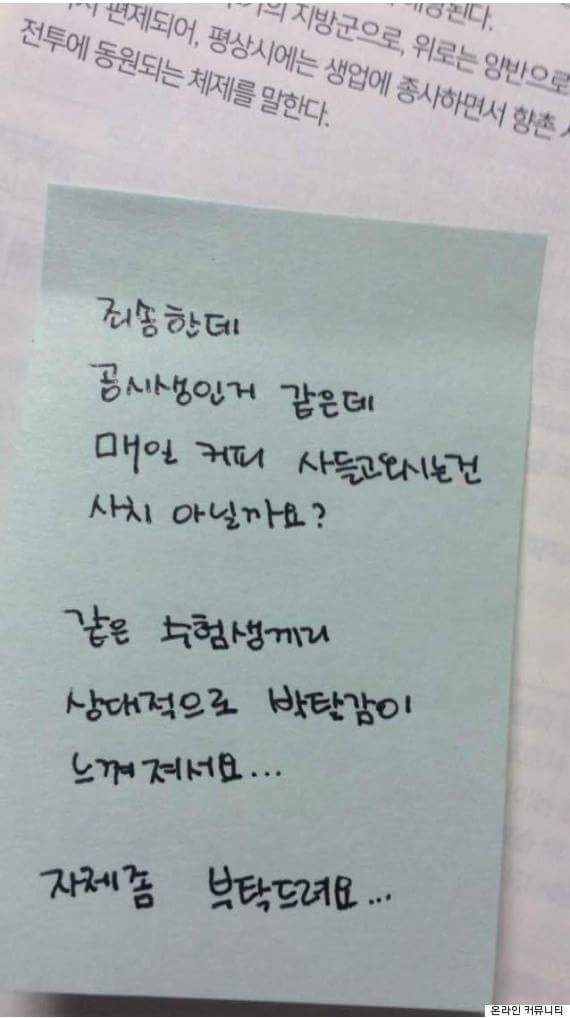 지방군으로, 위로는 양반으로
편제되어, 평상시에는 생업에 종사하면서 향촌
전투에 동원되는 체제를 말한다.
죄송한데
공시생인거 같은데
매일 커피 사들고오시는건
사치 아닐까요?
같은 수험생끼리
상대적으로 박탈감이
느껴져서요...
자제좀 부탁드려요...
온라인 커뮤니티